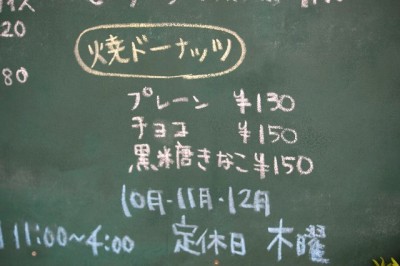 イス
20
焼ドーナッツ
80
プレーン ¥130
チョコ ¥150
黒糖きなこ ¥150
10月・11月・12月
11:00~4:00 定休日 木曜